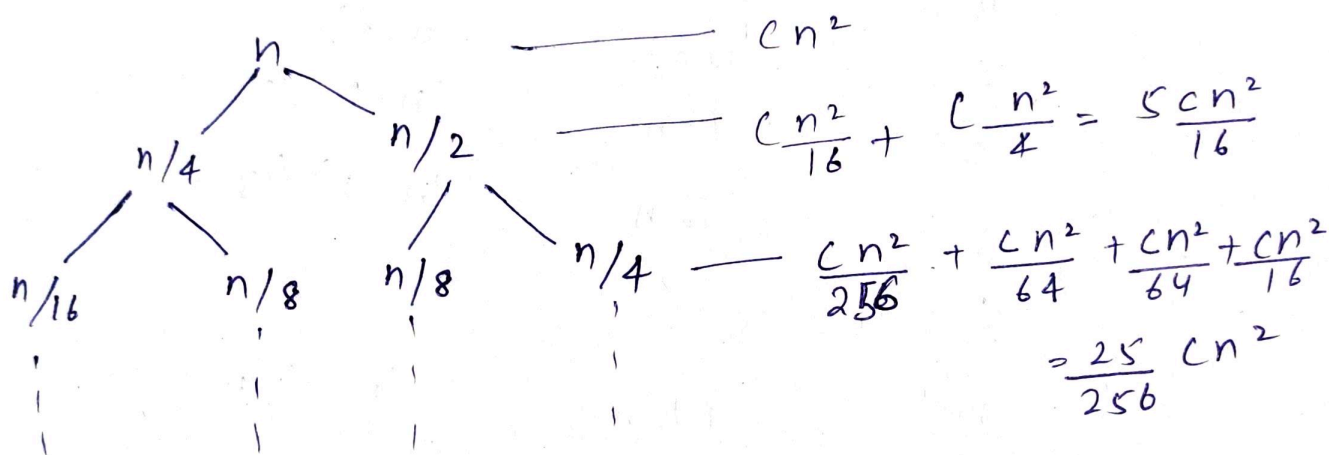 n —— cn²
n/4 n/2 —— cn²/16 + c n²/4 = 5cn²/16
n/16 n/8 n/8 n/4 — cn²/256 + cn²/64 + cn²/64 + cn²/16
= 25/256 cn²